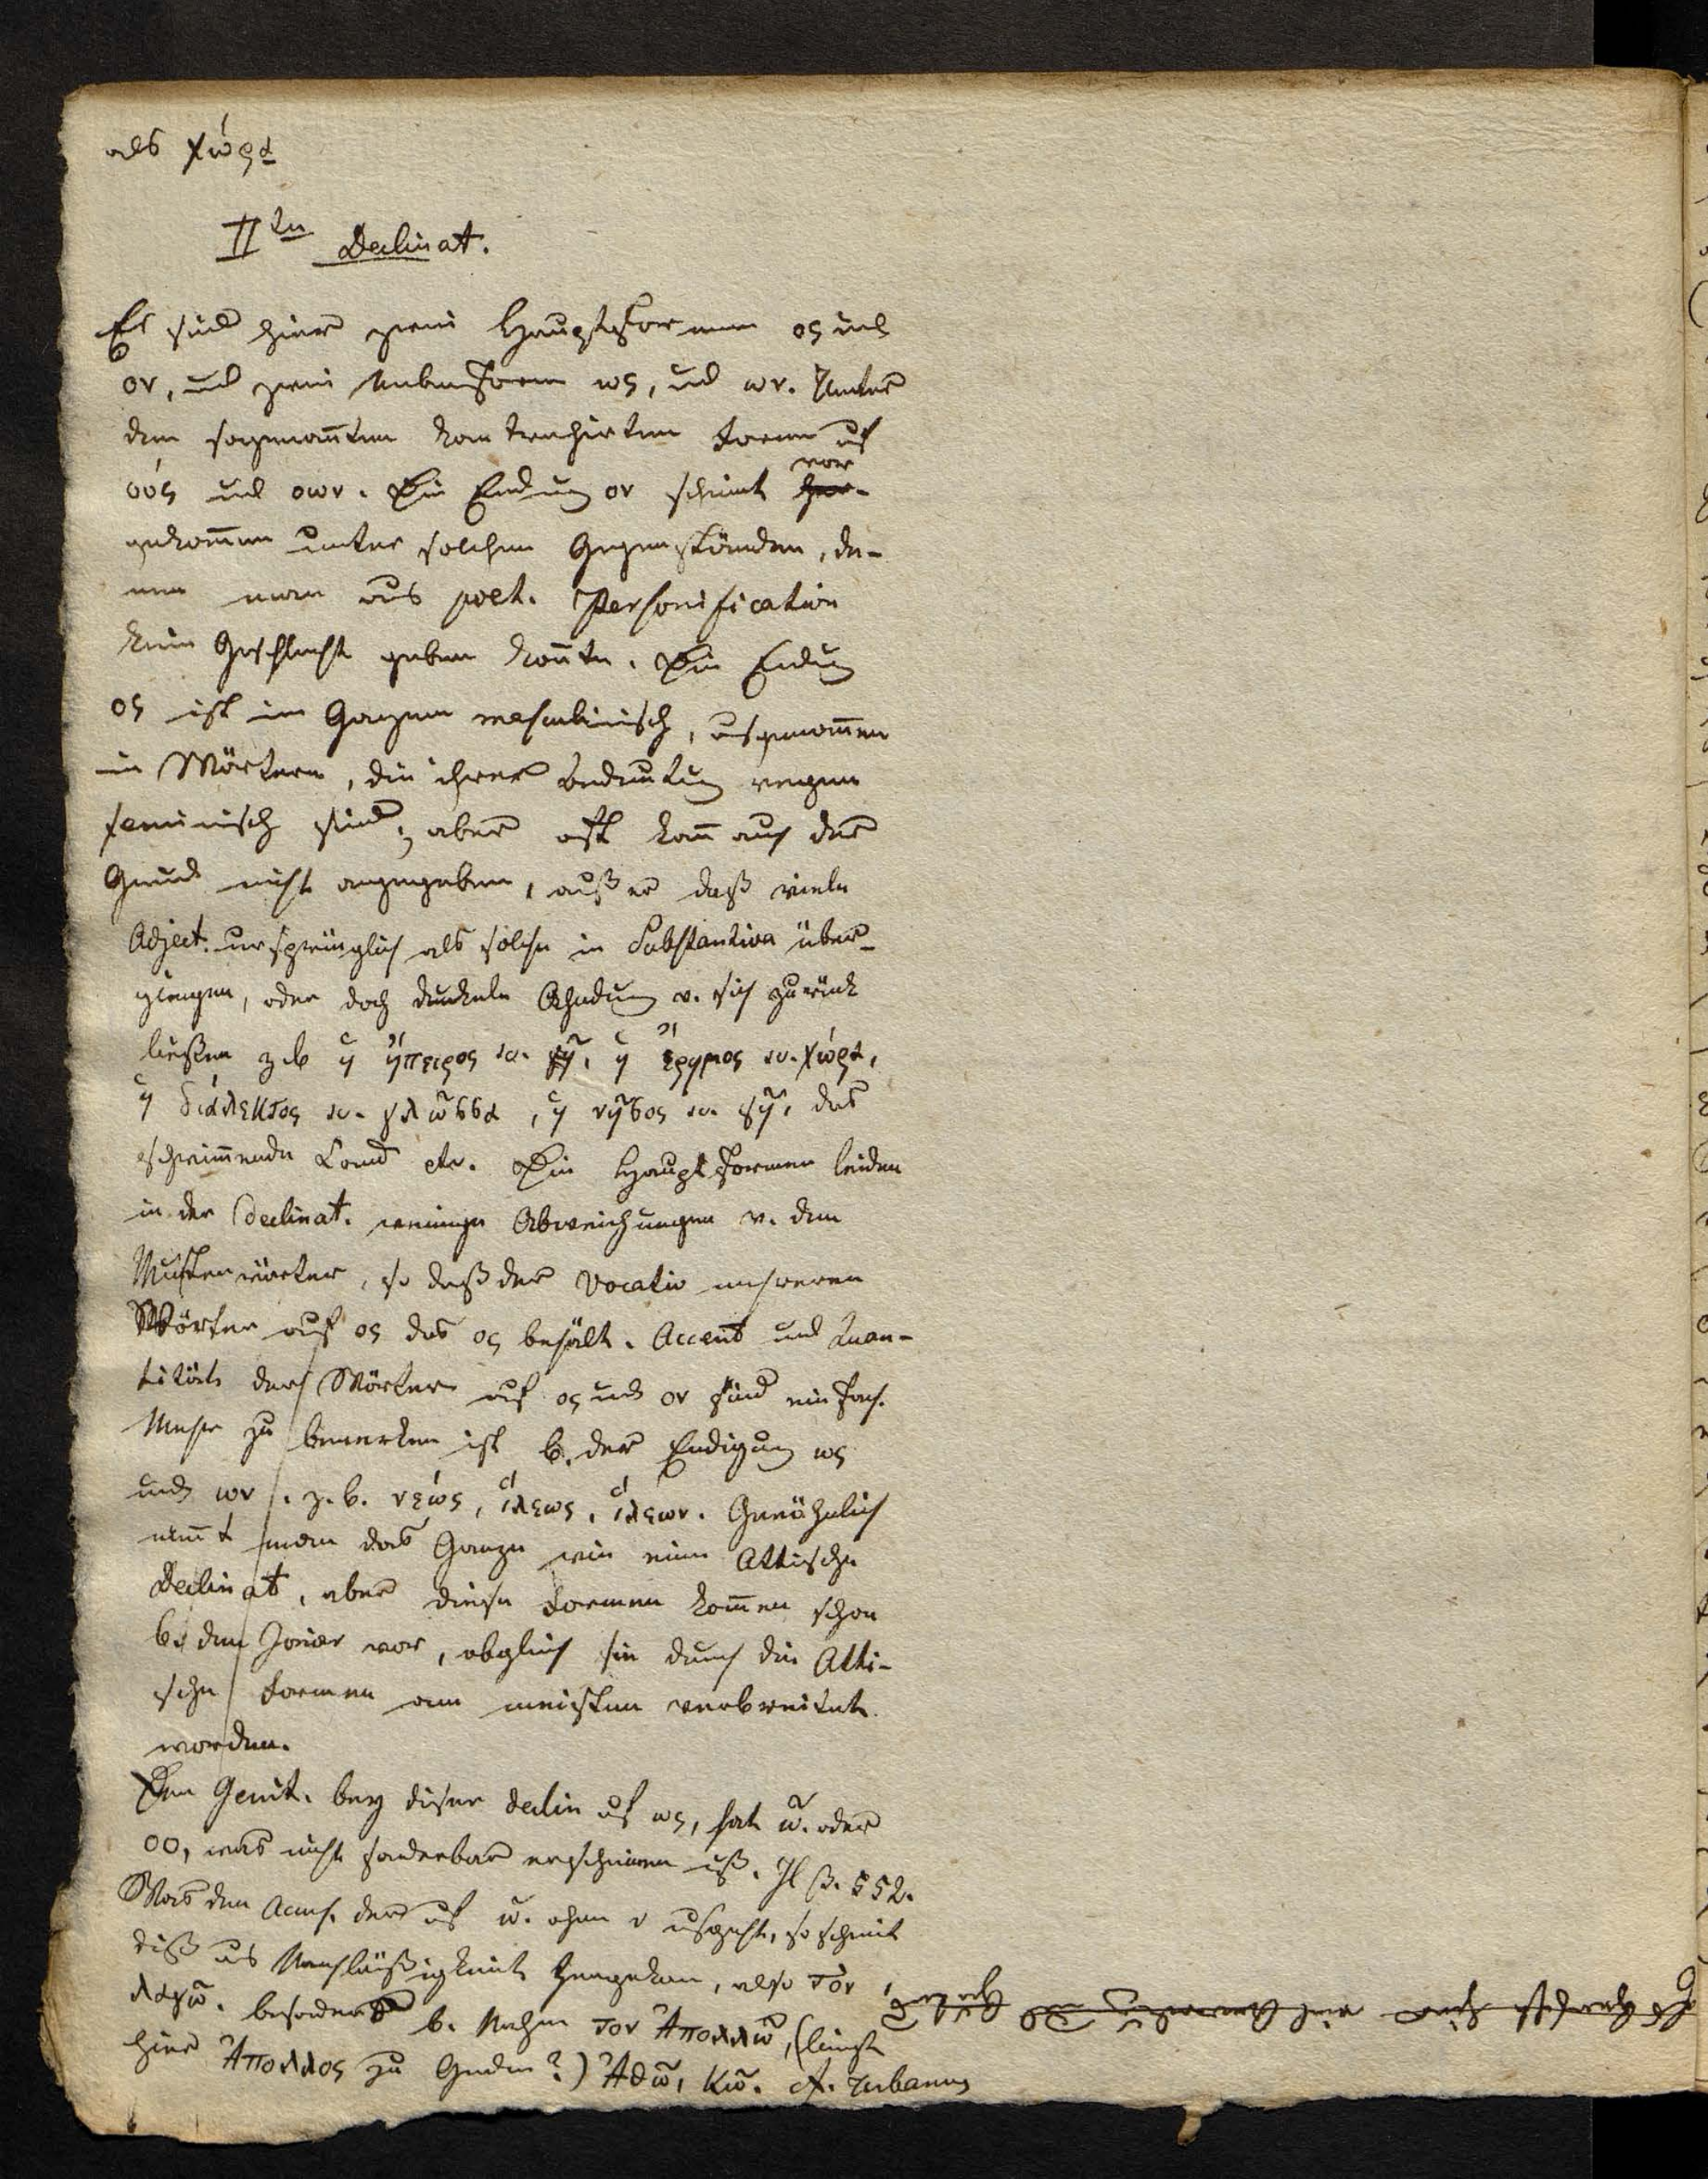 als χώρα
IIte Declinat.
Es sind hier zwei Hauptformen ος und
ον, und zwei Nebenform ως, und ων. Unter
den sogenam̄ten kontrahirten Formen auf
οός und οων. Die Endung ον scheint vor-
gekom̄en unter solchen Gegenständen, de-
nen man aus poet. Personification
kein Geschlecht geben kon̄te. Die Endung
ος ist im Ganzen masculinisch, ausgenom̄en
in Wörtern, die ihrer Bedeutung wegen
feminisch sind; aber oft kan̄ auch der
Grund nicht angegeben, außer daß viele
Adject. ursprünglich als solche in Substantiva über-
giengen, oder doch dunkele Ahndung v. sich zurück
ließen z.b ἡ ἤπειρος sc. γῆ, ἡ ἔρημος sc. χώρα,
ἡ διάλεκτος sc. γλῶσσα, ἡ νῆσος sc. γῆ, das
schwim̄ende Land etc. Die Hauptformen leiden
in der Declinat. wenige Abweichungen v. den
Musterwörter, so daß der Vocativ mehreren
Wörter auf ος das ος behält. Accent und Quan-
tität der Wörter auf ος und ον sind einfach.
Mehr zu bemerken ist b. der Endigung ως
und ων. z.b. νεώς, ἵλεως, ἵλεων. Gewöhnlich
nen̄t man das Ganze wie eine Attische
Declinat, aber diese Formen kom̄en schon
b. den Jonier vor, obgleich sie durch die Atti-
sche Formen am meisten verbreitet
worden.
Der Genit. bey diser Declin auf ως, hat ω. oder
οο, was nicht sonderbar erscheinen muß. Il β. 552.
Was den Accus. der auf ω. ohne ν ausgeht, so scheint
diß aus Nachläßigkeit hergekom, also τὸν
λαγῶ. besonders b. Nahmen τον Ἀπολλῶ, (liegt
hier Ἄπολλος zu Grunde?) Ἀθῶ, Κῶ. cf.